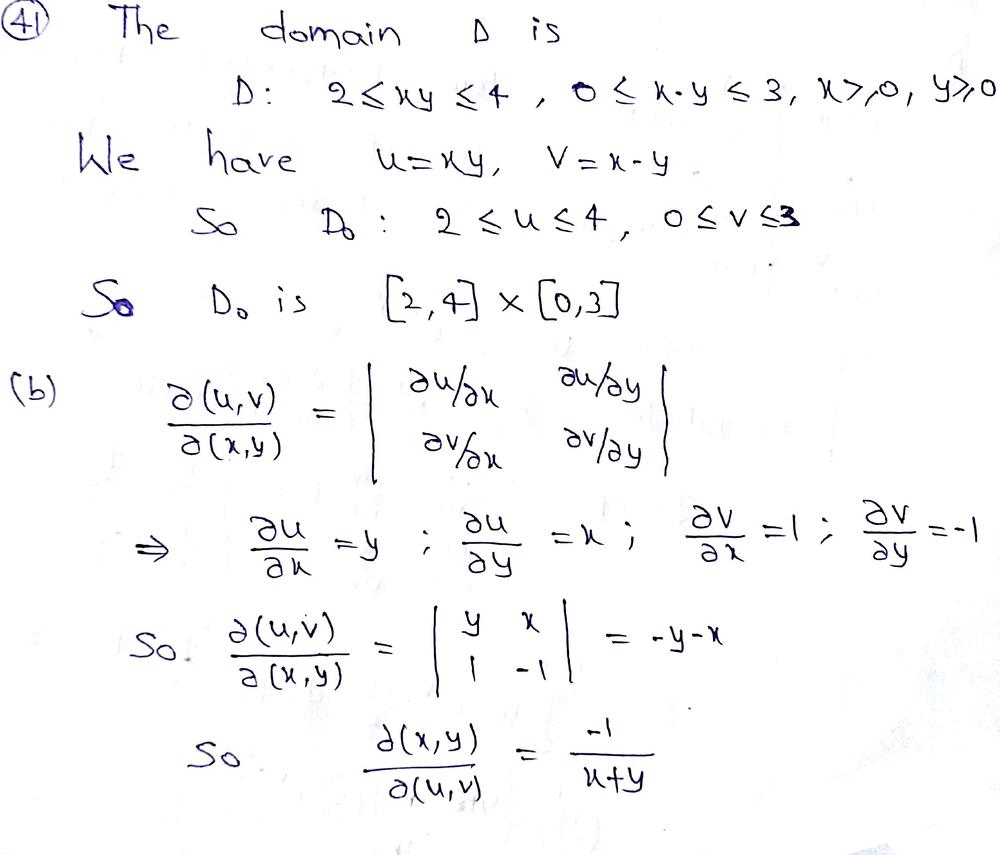 (41) The domain D is
D: 2 ≤ xy ≤ 4, 0 ≤ x-y ≤ 3, x≥0, y≥0
We have u=xy, v=x-y
So D₀: 2 ≤ u ≤ 4, 0 ≤ v ≤ 3
So D₀ is [2,4] × [0,3]
(b) ∂(u,v)/∂(x,y) = | ∂u/∂x ∂u/∂y |
| ∂v/∂x ∂v/∂y |
⇒ ∂u/∂x = y ; ∂u/∂y = x ; ∂v/∂x = 1 ; ∂v/∂y = -1
So ∂(u,v)/∂(x,y) = | y x |
| 1 -1 | = -y-x
So ∂(x,y)/∂(u,v) = -1/x+y